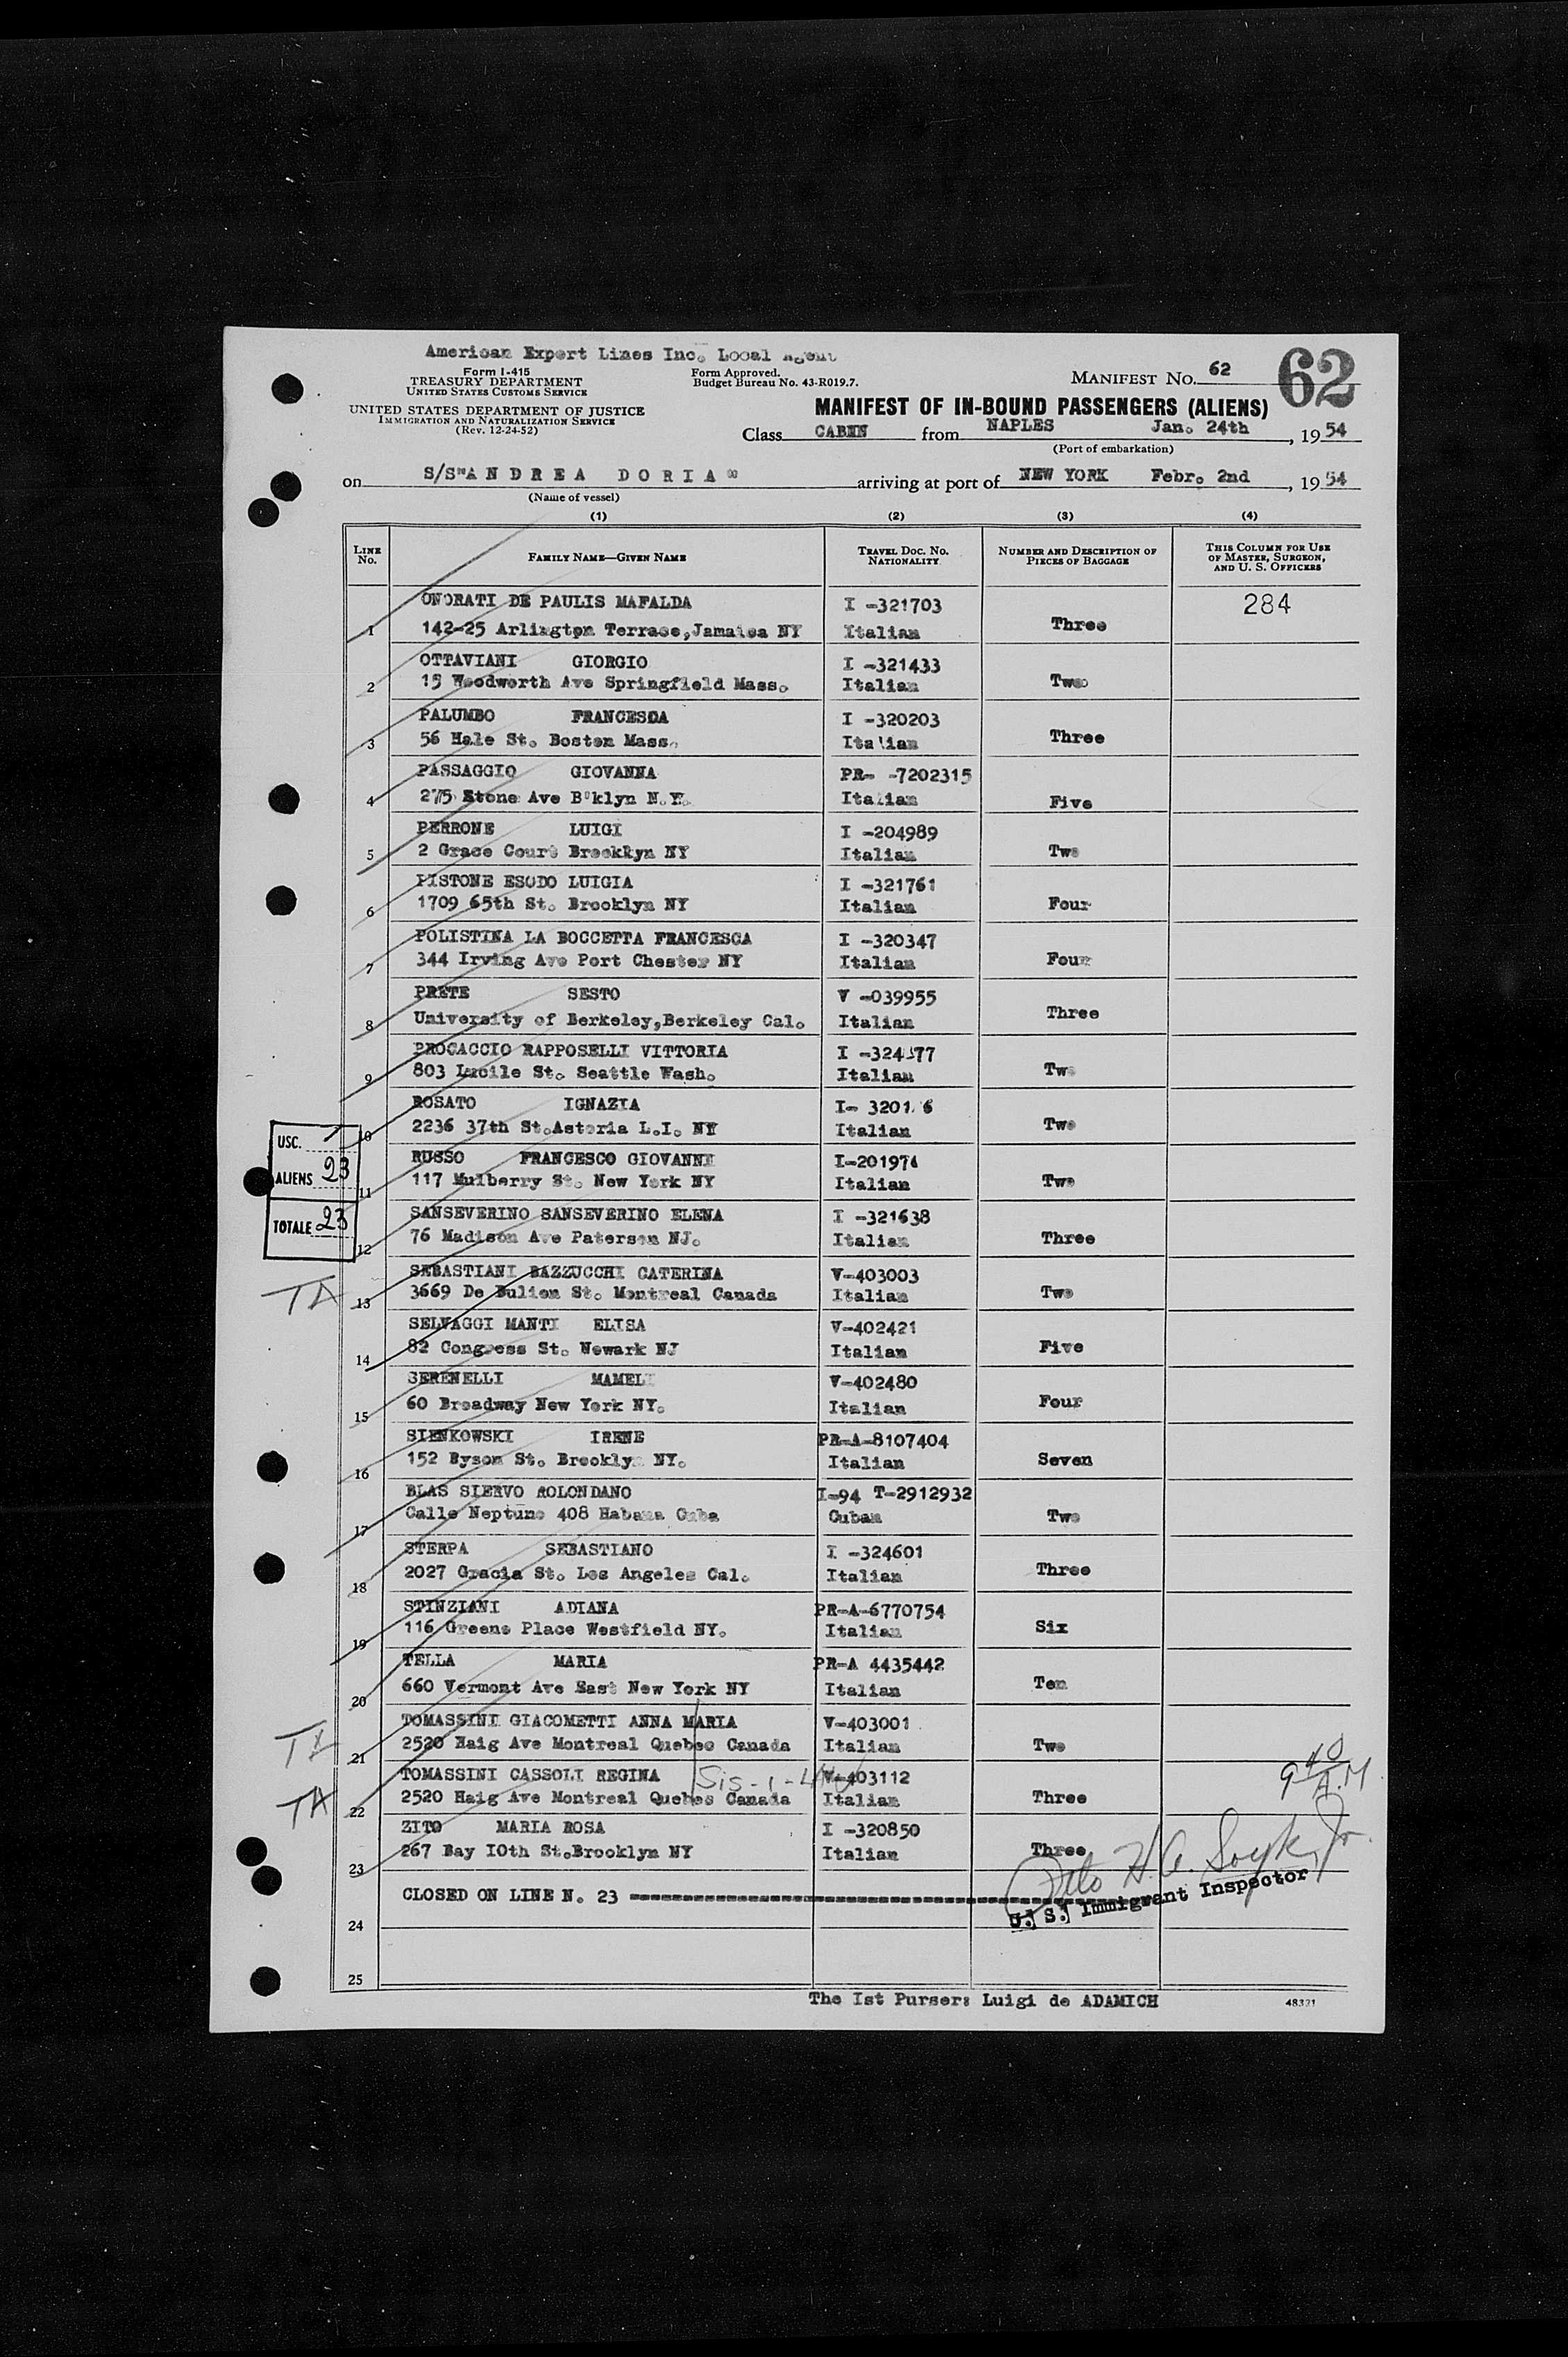 American Export Lines Inc. Local Agent
Form I-415
TREASURY DEPARTMENT
UNITED STATES CUSTOMS SERVICE
UNITED STATES DEPARTMENT OF JUSTICE
IMMIGRATION AND NATURALIZATION SERVICE
(Rev. 12-24-52)
Form Approved.
Budget Bureau No. 43-R019.7.
MANIFEST No. 62
62
MANIFEST OF IN-BOUND PASSENGERS (ALIENS)
Class CABIN from NAPLES Jan. 24th, 1954
(Port of embarkation)
on S/S"ANDREA DORIA" arriving at port of NEW YORK Febr. 2nd, 1954
(Name of vessel)
(1) (2) (3) (4)
LINE No. FAMILY NAME—GIVEN NAME TRAVEL DOC. NO. NATIONALITY NUMBER AND DESCRIPTION OF PIECES OF BAGGAGE THIS COLUMN FOR USE OF MASTER, SURGEON, AND U. S. OFFICERS
ONORATI DE PAULIS MAFALDA I -321703 284
1 142-25 Arlington Terrace,Jamaica NY Italian Three
OTTAVIANI GIORGIO I -321433
2 15 Woodworth Ave Springfield Mass. Italian Two
PALUMBO FRANCESCA I -320203
3 56 Hale St. Boston Mass. Italian Three
PASSAGGIO GIOVANNA PR- -7202315
4 275 Stone Ave B'klyn N.Y. Italian Five
PERRONE LUIGI I -204989
5 2 Grace Court Brooklyn NY Italian Two
PISTONE ESODO LUIGIA I -321761
6 1709 65th St. Brooklyn NY Italian Four
POLISTINA LA BOCCETTA FRANCESCA I -320347
7 344 Irving Ave Port Chester NY Italian Four
PRETE SESTO V -039955
8 University of Berkeley,Berkeley Cal. Italian Three
PROCACCIO RAPPOSELLI VITTORIA
9 803 Lucile St. Seattle Wash. Italian Two
ROSATO IGNAZIA
10 2236 37th St.Astoria L.I. NY Italian Two
RUSSO FRANCESCO GIOVANNI I-201974
11 117 Mulberry St. New York NY Italian Two
SANSEVERINO SANSEVERINO ELENA I -321638
12 76 Madison Ave Paterson NJ. Italian Three
USC. /
ALIENS 23
TOTALE 23
SEBASTIANI BAZZUCCHI CATERINA V-403003
TA 13 3669 De Bulion St. Montreal Canada Italian Two
SELVAGGI MANTI ELISA V-402421
14 82 Congress St. Newark NJ Italian Five
SERENELLI MAMELI V-402480
15 60 Broadway New York NY. Italian Four
SIENKOWSKI IRENE PR-A-8107404
16 152 Byson St. Brooklyn NY. Italian Seven
BLAS SIERVO ROLONDANO I-94 T-2912932
17 Calle Neptuno 408 Habana Cuba Cuban Two
STERPA SEBASTIANO I -324601
18 2027 Gracia St. Los Angeles Cal. Italian Three
STINZIANI ADIANA PR-A-6770754
19 116 Greene Place Westfield NY. Italian Six
TELLA MARIA PR-A 4435442
20 660 Vermont Ave East New York NY Italian Ten
TOMASSINI GIACOMETTI ANNA MARIA V-403001
21 2520 Haig Ave Montreal Quebec Canada Italian Two
TOMASSINI CASSOLI REGINA V-403112 9 40 A.M
TA 22 2520 Haig Ave Montreal Quebec Canada Italian Three
ZITO MARIA ROSA I -320850
23 267 Bay 10th St.Brooklyn NY Italian Three
CLOSED ON LINE N. 23
U. S. Immigrant Inspector
24
25
The Ist Purser: Luigi de ADAMICH
48321